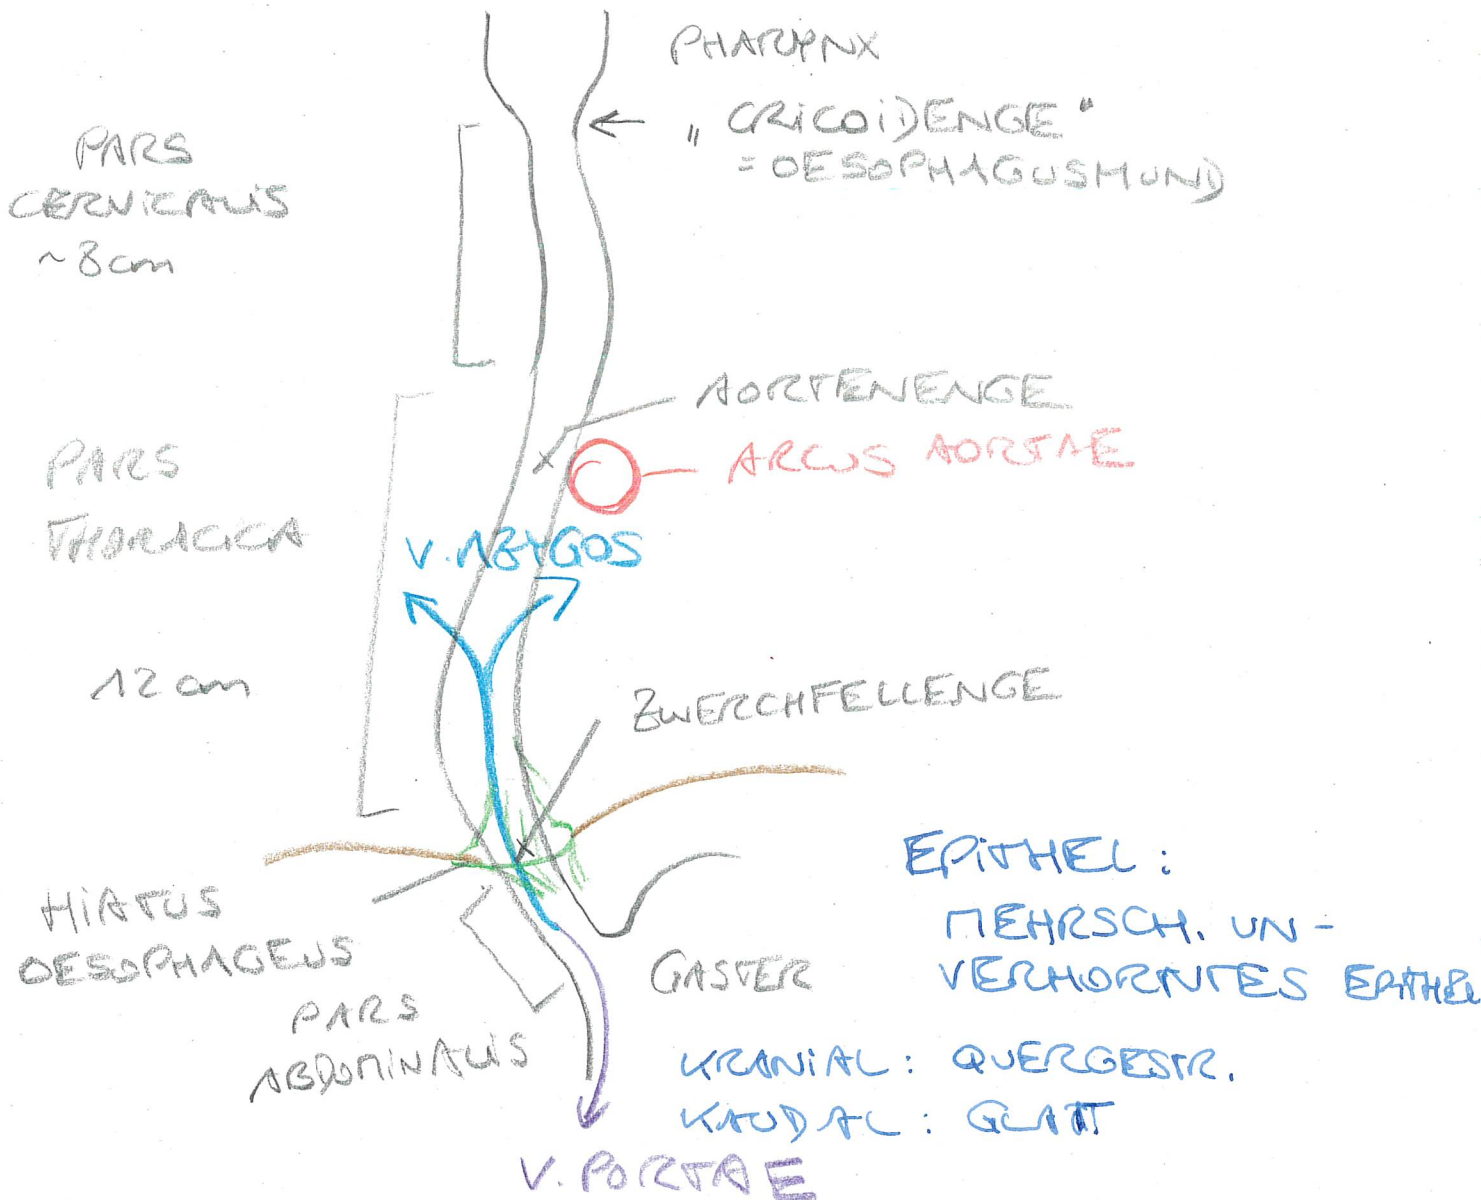 PHARYNX
„ CRICOIDENGE "
= OESOPHAGUSMUND
PARS
CERVICALIS
~8cm
AORTENENGE
ARCUS AORTAE
PARS
THORACICA
V. AZYGOS
12 cm
ZWERCHFELLENGE
HIATUS
OESOPHAGEUS
PARS
ABDOMINALIS
GASTER
EPITHEL :
MEHRSCH. UN-
VERHORNTES EPITHEL
KRANIAL : QUERGESTR.
KAUDAL : GLATT
V. PORTAE